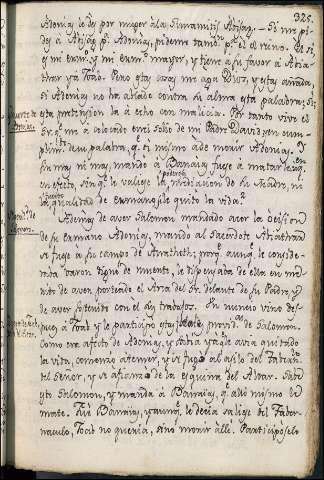 325.
Adonias le des por muger a la Sunamitis Abisag. Si me pi-
des a Abisag pª Adonias, pideme tambⁿ pª el el reino. El si,
es mi ermº y mi ermº mayor, y tiene a su favor a Abia-
thar y a Joab. Pero estas cosas me aga Dios, y estas añada,
si Adonias no ha ablado contra su alma esta palabra;
esta pretension la a echo con malicia. Por tanto vive el
Sr. qᵉ me a colocado en el Solio de mi Padre David en cum-
plimᵗᵒ de su palabra, qᵉ oi mismo a de morir Adonias. I
sin mas ni mas mandó a Banaias fuese a matarle
en efecto, sin qᵉ le valiese la mediacion de su Madre, ni
la qualidad de ermano, le quito la vida.
Ademas de aver Salomon mandado acer la
de su ermano Adonias, mandó al Sacerdote Abiathar
se fuese a su campo de Anathoth; porqᵉ aunqᵉ le conside-
raba varon digno de muerte, le dispensaba de ella en me-
rito de aver porteado el Arca del Sr. delante de su Padre, y
de aver sostenido con el los trabajos. Un nuncio vino des-
pues a Joab y le participó estas provid.ᵃˢ de Salomon.
Como era afecto de Adonias, y sabia ya le avia quitado
la vida, comenzó a temer, y se fugó al asilo del Taberna-
del Señor, y se afianzó de la esquina del Altar. Sabe
esto Salomon, y manda a Banaias, qᵉ alli mismo le
mate. Fue Banaias, y aunqᵉ le decia saliese del Taber-
naculo, Joab no queria, sino morir alli. Participóselo